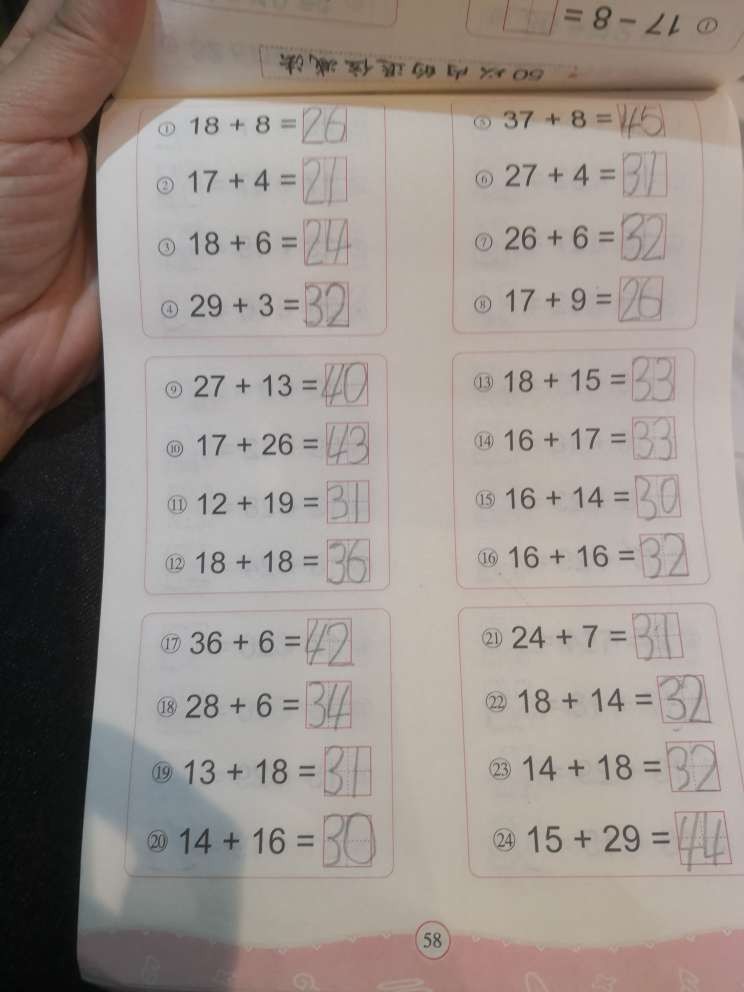 ① 17 − 8 =
50以内的进位减法
① 18 + 8 = 26
② 17 + 4 = 21
③ 18 + 6 = 24
④ 29 + 3 = 32
⑤ 37 + 8 = 45
⑥ 27 + 4 = 31
⑦ 26 + 6 = 32
⑧ 17 + 9 = 26
⑨ 27 + 13 = 40
⑩ 17 + 26 = 43
⑪ 12 + 19 = 31
⑫ 18 + 18 = 36
⑬ 18 + 15 = 33
⑭ 16 + 17 = 33
⑮ 16 + 14 = 30
⑯ 16 + 16 = 32
⑰ 36 + 6 = 42
⑱ 28 + 6 = 34
⑲ 13 + 18 = 31
⑳ 14 + 16 = 30
㉑ 24 + 7 = 31
㉒ 18 + 14 = 32
㉓ 14 + 18 = 32
㉔ 15 + 29 = 44
58